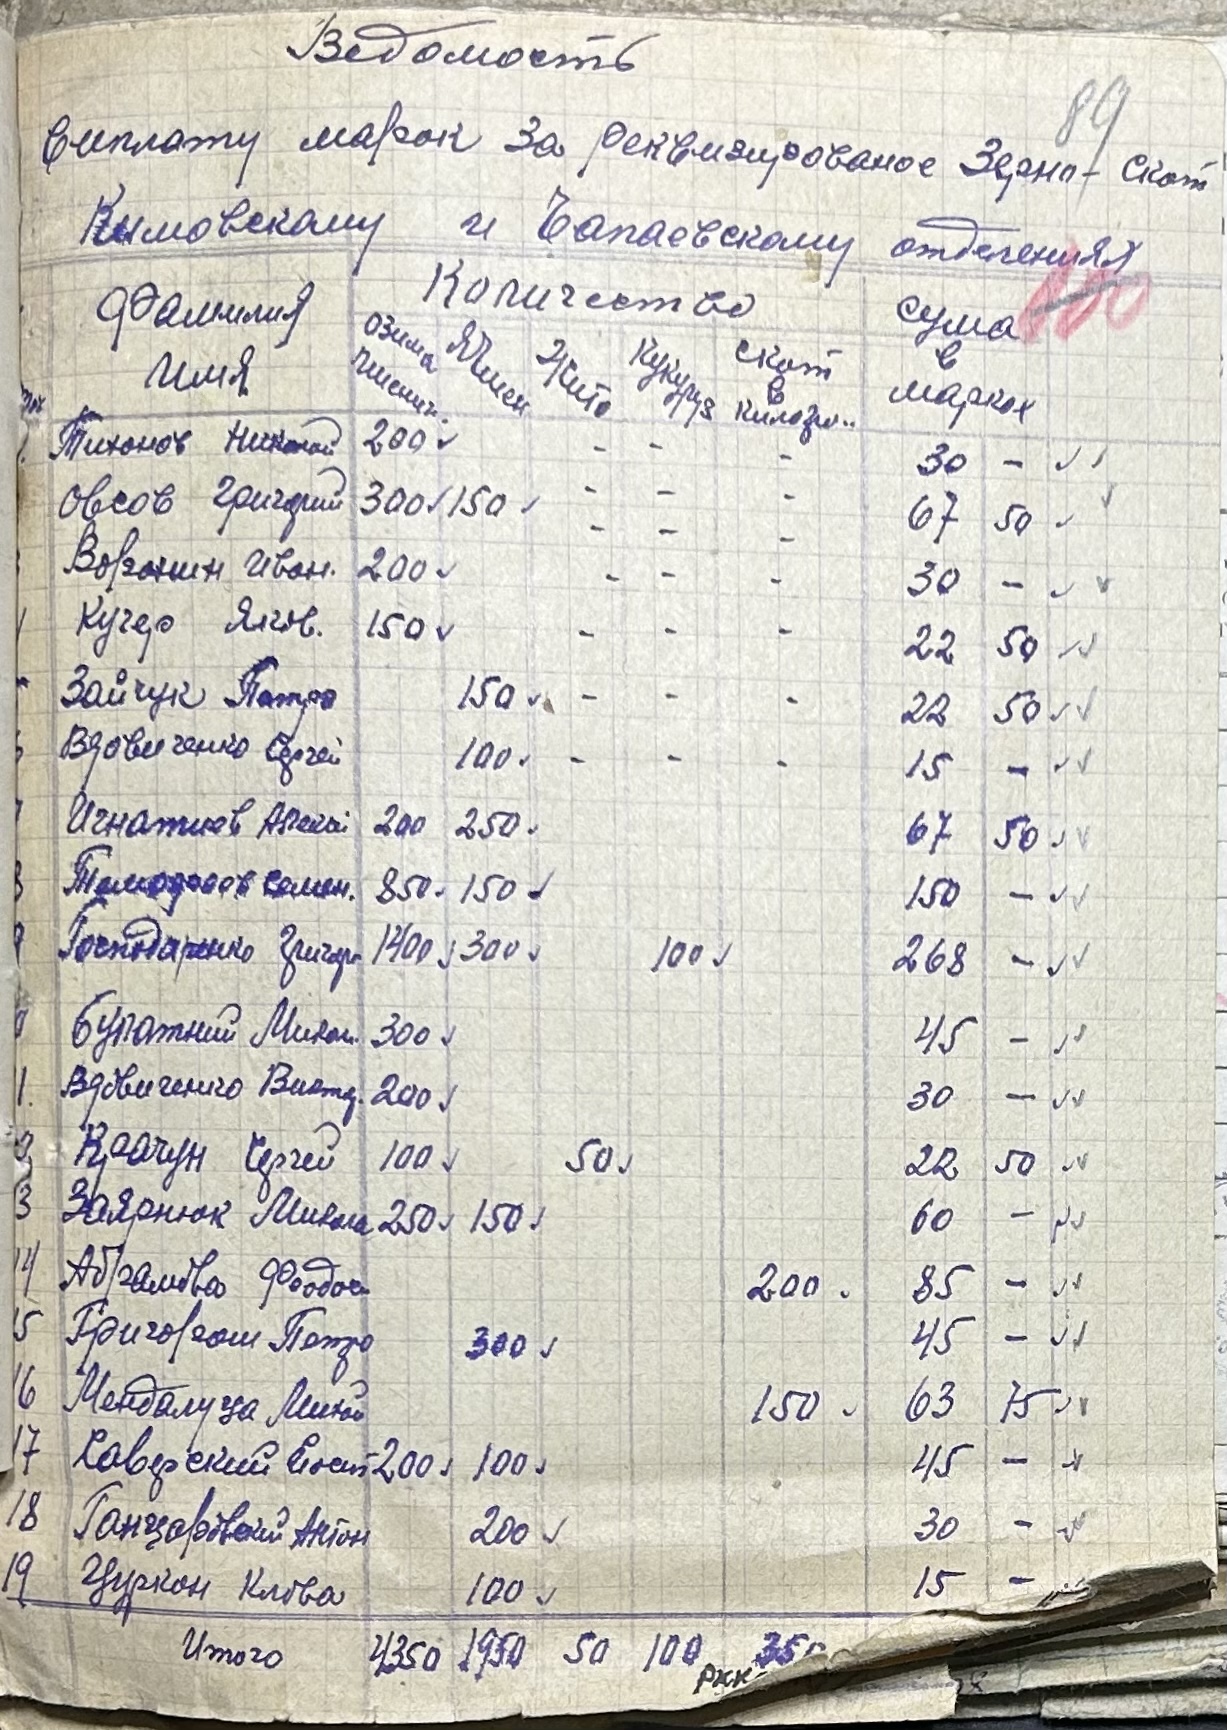 Ведомость
89
Виплату марок за реквизированое Зерно - скот
Кимовскому и Чапаевскому отделениях
100
Фамилия Имя Количество сума в марках
озима пшениц. Ячмен Жито Кукуруз скот в килогр..
Тихонов Николай 200 - - - 30 -
Овсов Григорий 300 150 - - - 67 50
- - -
Воронин Иван. 200 - - - 30 -
Кучер Яков. 150 - - - 22 50
Зайчук Петро 150 - - - 22 50
Вдовиченко Сергей 100 - - - 15 -
Игнатиев Алексей 200 250 67 50
8 Семен. 850 150 150 -
9 Господаренко Григор 1400 300 100 268 -
Булажний Микол. 300 45 -
1. Вдовиченко Виктр. 200 30 -
2 Крачун Сергей 100 50 22 50
3 Заярнюк Микола 250 150 60 -
14 Абрамова Феодос 200 85 -
5 Григораш Петро 300 45 -
16 Мендалуца Микол 150 63 75
17 Саверский Игнат 200 100 45 -
18 Ганцаровский Антон 200 30 -
19 Цуркан Клова 100 15 -
Итого 4350 1950 50 100 350